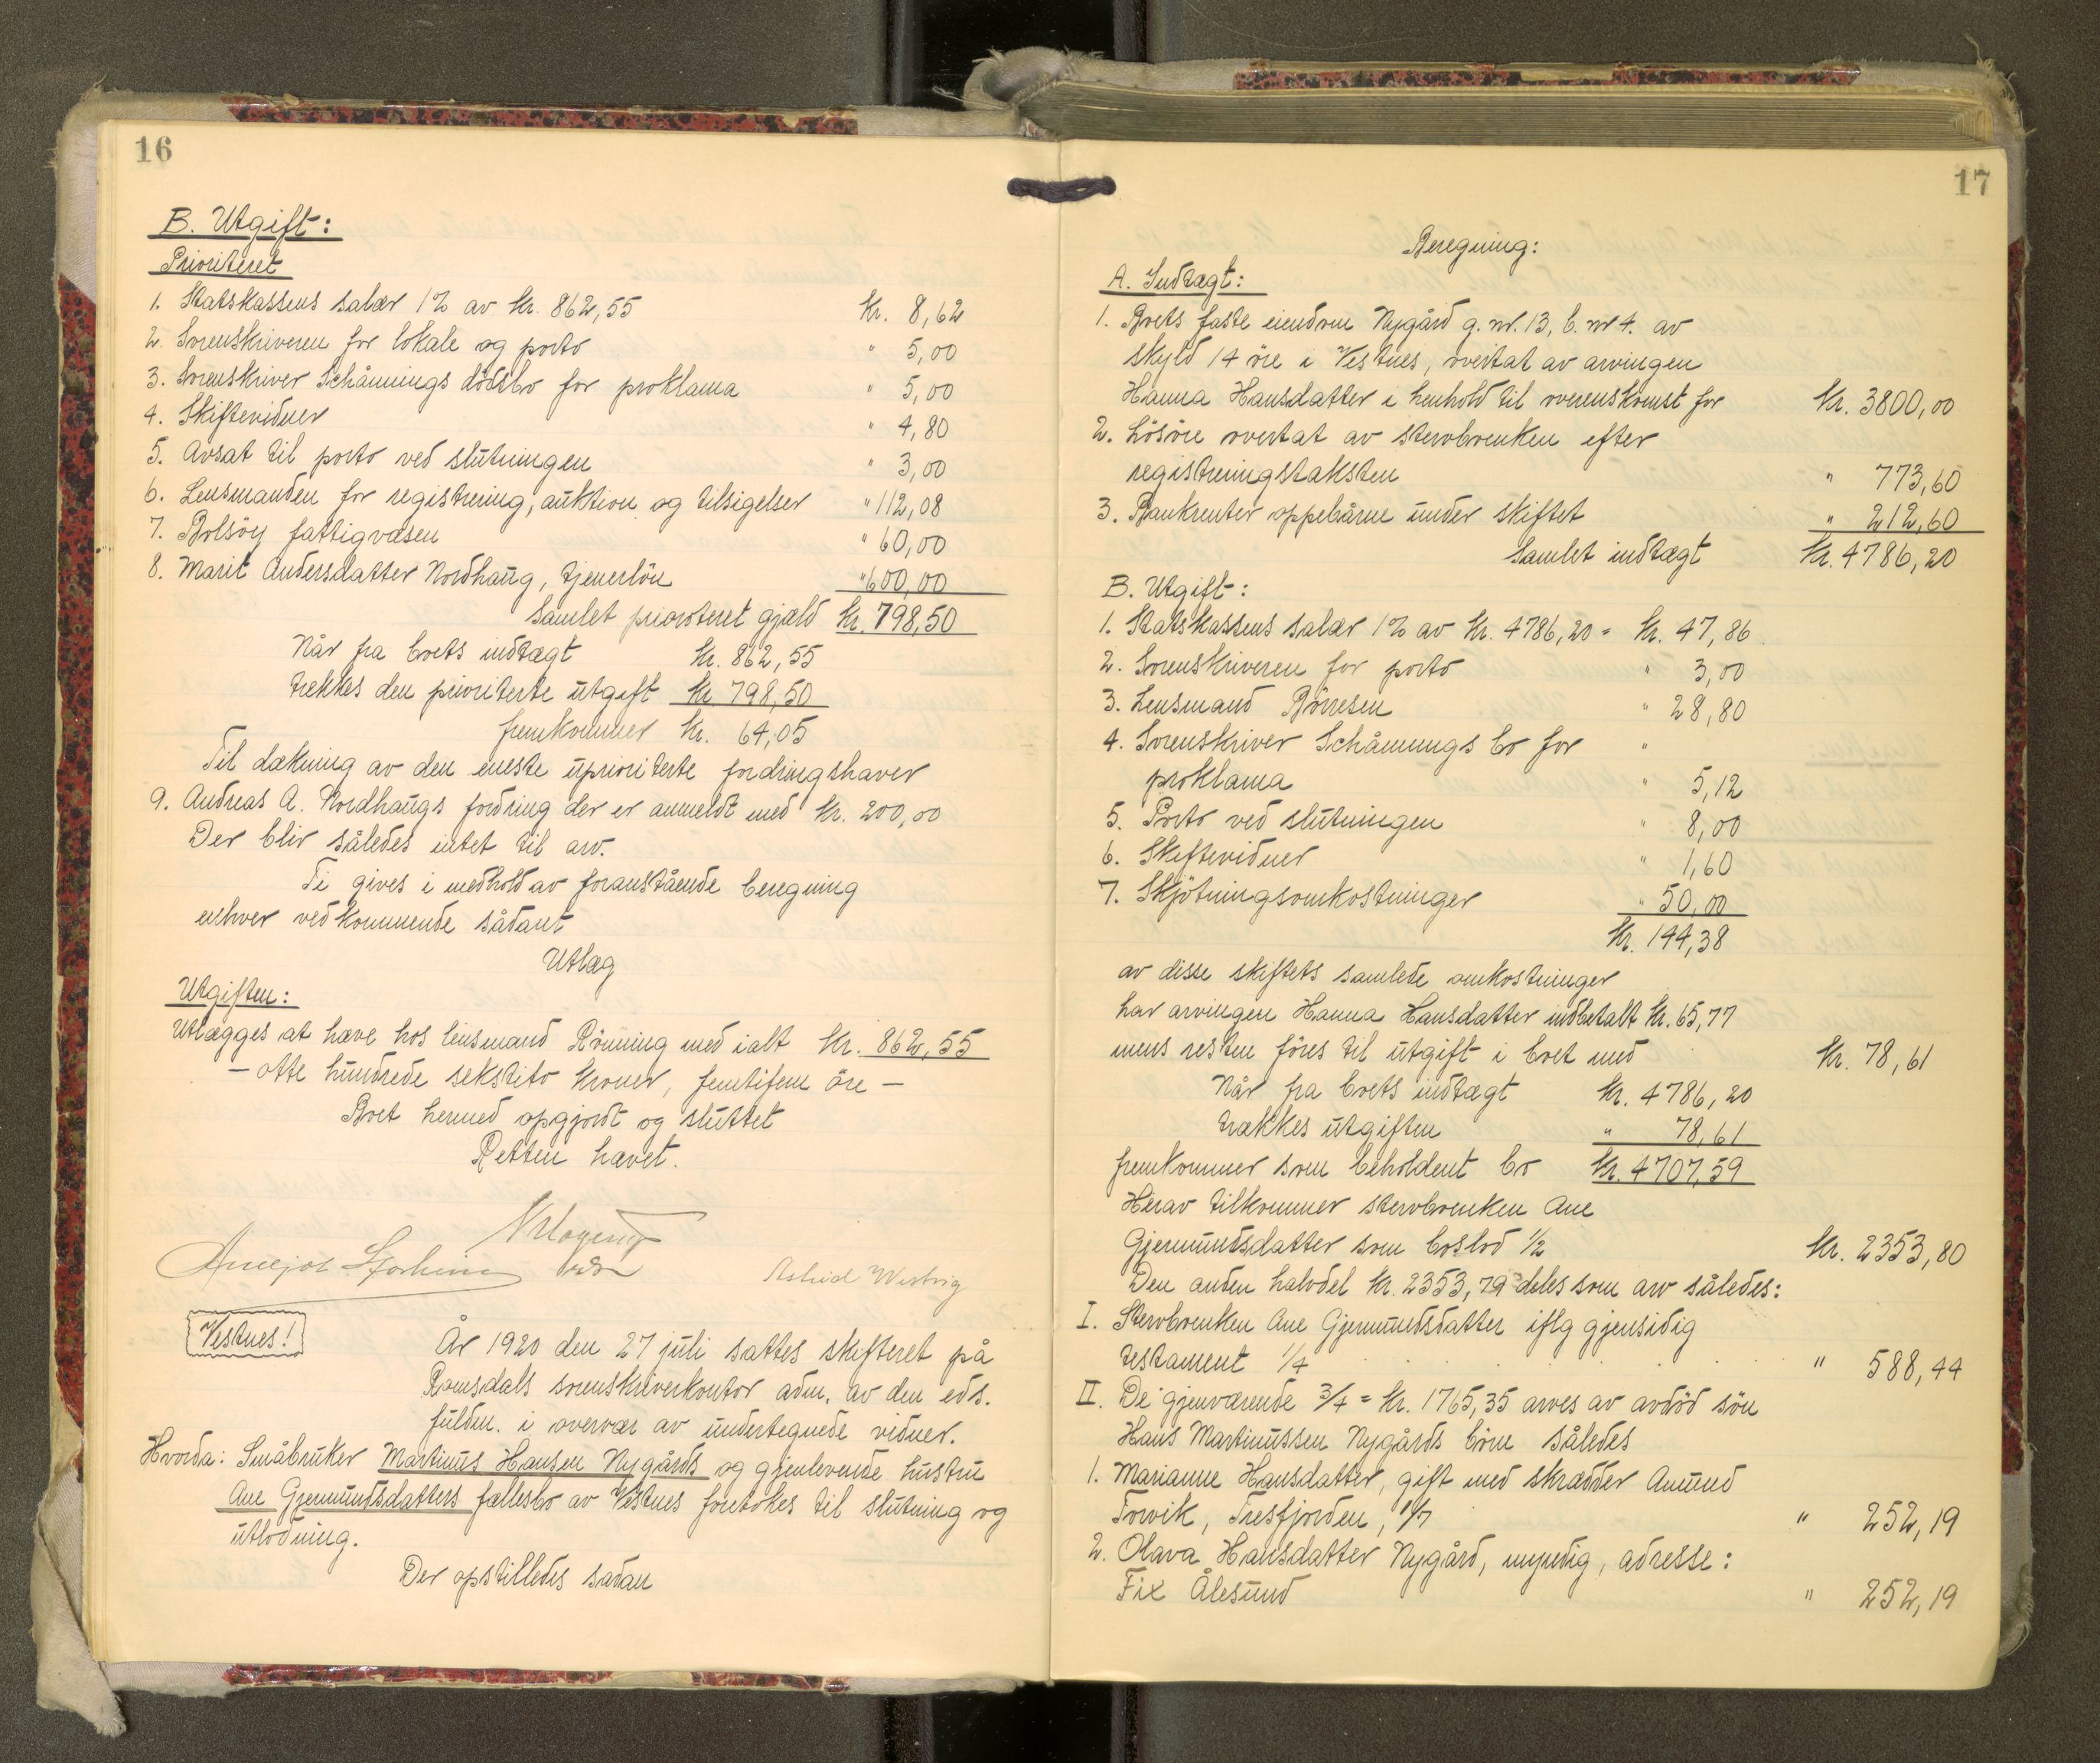 16
B. Utgift:
Prioriteret
1. Statskassens salær 1% av kr. 862,55 kr. 8,62
2. Sorenskriveren for lokale og porto " 5,00
3. Sorenskriver Schånnings dødsbo for proklama " 5,00
4. Skiftevidner " 4,80
5. Avsat til porto ved slutningen " 3,00
6. Lensmanden for registrering, auktion og tilsigelser " 112,08
7. Bolsöy fattigvæsen " 60,00
8. Marit Andersdatter Nordhaug, tjenerlön " 600,00
Samlet prioriteret gjæld kr. 798,50
Når fra boets indtægt kr. 862,55
trekkes den prioriterte utgift kr. 798,50
fremkommer kr. 64,05
Til dækning av den eneste uprioriterte fordringshaver
9. Andreas A. Nordhaugs fordring der er anmeldt med kr. 200,00
Der blir således intet til arv.
Ti gives i medhold av foranstående beregning
enhver vedkommende sådant
Utlæg
Utgiften:
Utlægges at hæve hos lensmand Rönning med ialt kr. 862,55
– otte hundrede sekstito kroner, femtifem öre –
Boet hermed opgjordt og sluttet
Retten hævet.
Astrid Westvig
Vestnes!
År 1920 den 27 juli sattes skifteret på
Romsdals sorenskriverkontor adm. av den eds.
fuldm. i overvær av undertegnede vidner.
Hvorda: Småbruker Martinus Hansen Nygårds og gjenlevende hustru
Ane Gjermundsdatters fællesbo av Vestnes foretokes til slutning og
utlodning.
Der opstilledes sådan
17
Beregning:
A. Indtægt:
1. Boets faste eiendom Nygård g.nr. 13, b.nr 4. av
skyld 14 öre i Vestnes, overtat av arvingen
Hanna Hansdatter i henhold til overenskomst for kr. 3800,00
2. Lösöre overtat av stervboenken efter
registreringstaksten " 773,60
3. Bankrenter oppebårne under skiftet " 212,60
Samlet indtægt kr. 4786,20
B. Utgift:
1. Statskassens salær 1% av kr. 4786,20 = kr. 47,86
2. Sorenskriveren for porto " 3,00
3. Lensmand Börresen " 28,80
4. Sorenskriver Schånnings bo for "
proklama " 5,12
5. Porto ved slutningen " 8,00
6. Skiftevidner " 1,60
7. Skjötningsomkostninger " 50,00
kr. 144,38
av disse skiftets samlede omkostninger
har arvingen Hanna Hansdatter indbetalt kr. 65,77
mens resten föres til utgift i boet med kr. 78,61
Når fra boets indtægt kr. 4786,20
trækkes utgiften " 78,61
fremkommer som beholdent bo kr. 4707,59
Herav tilkommer stervboenken Ane
Gjermundsdatter som boslod 1/2 kr. 2353,80
Den anden halvdel kr. 2353,79 deles som arv således:
I. Stervboenken Ane Gjermundsdatter iflg gjensidig
testament 1/4 " 588,44
II. De gjenværende 3/4 = kr. 1765,35 arves av avdöd sön
Hans Martinussen Nygårds börn således
1. Marianne Hansdatter, gift med skrædder Amund
Torvik, Tresfjorden, 1/7 " 252,19
2. Olava Hansdatter Nygård, myndig, adresse:
Fix Ålesund " 252,19